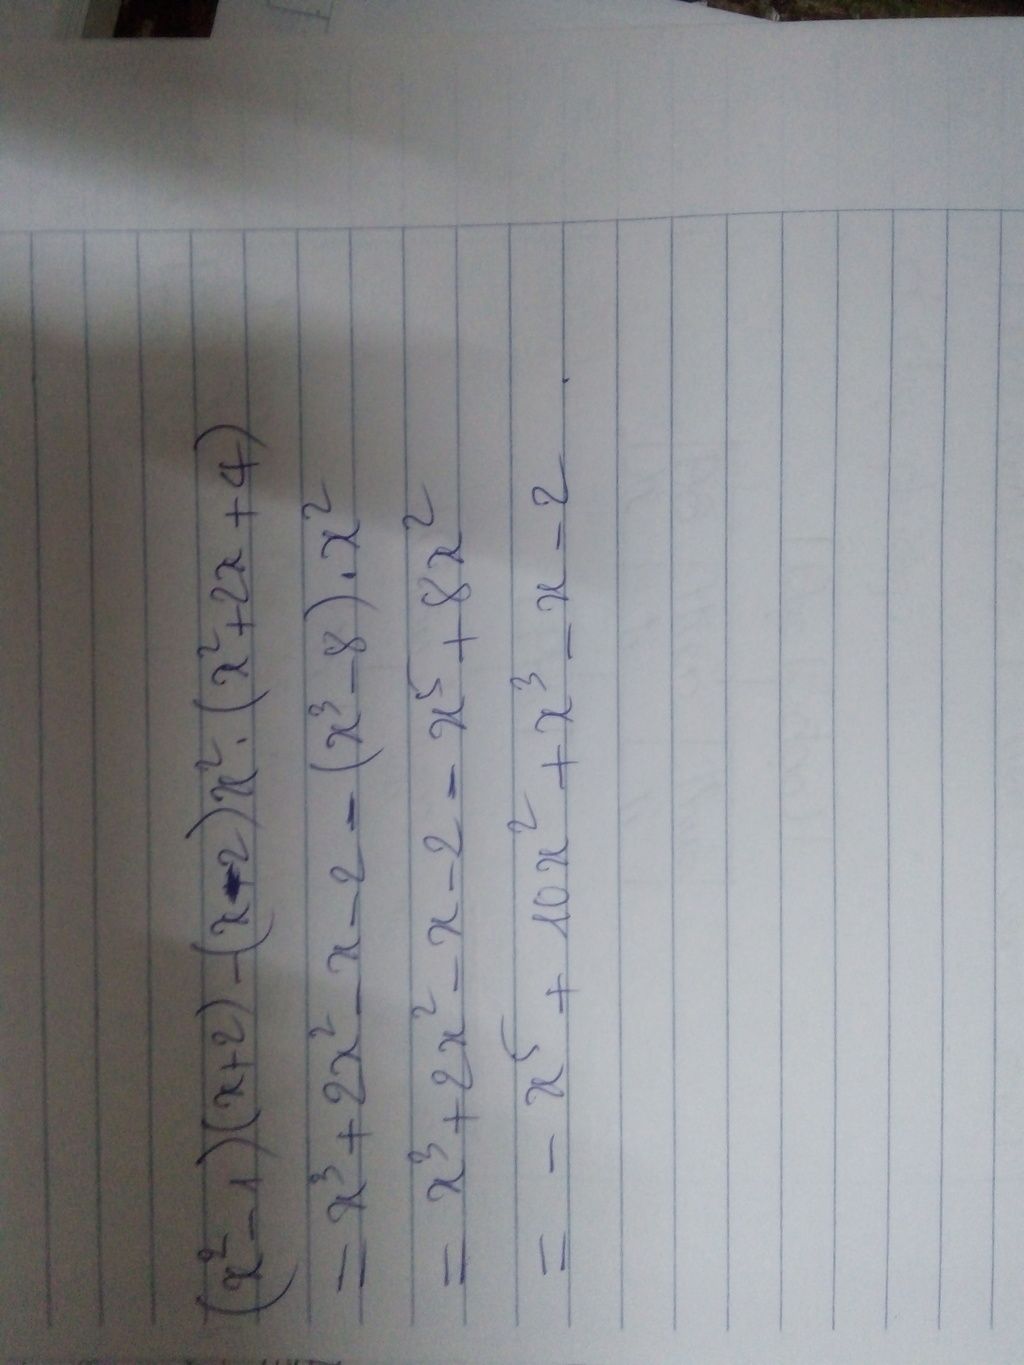 (x² - 1)(x+2) - (x-2)x².(x²+2x+4)
= x³ + 2x² - x - 2 - (x³ - 8).x²
= x³ + 2x² - x - 2 - x⁵ + 8x²
= - x⁵ + 10x² + x³ - x - 2 .